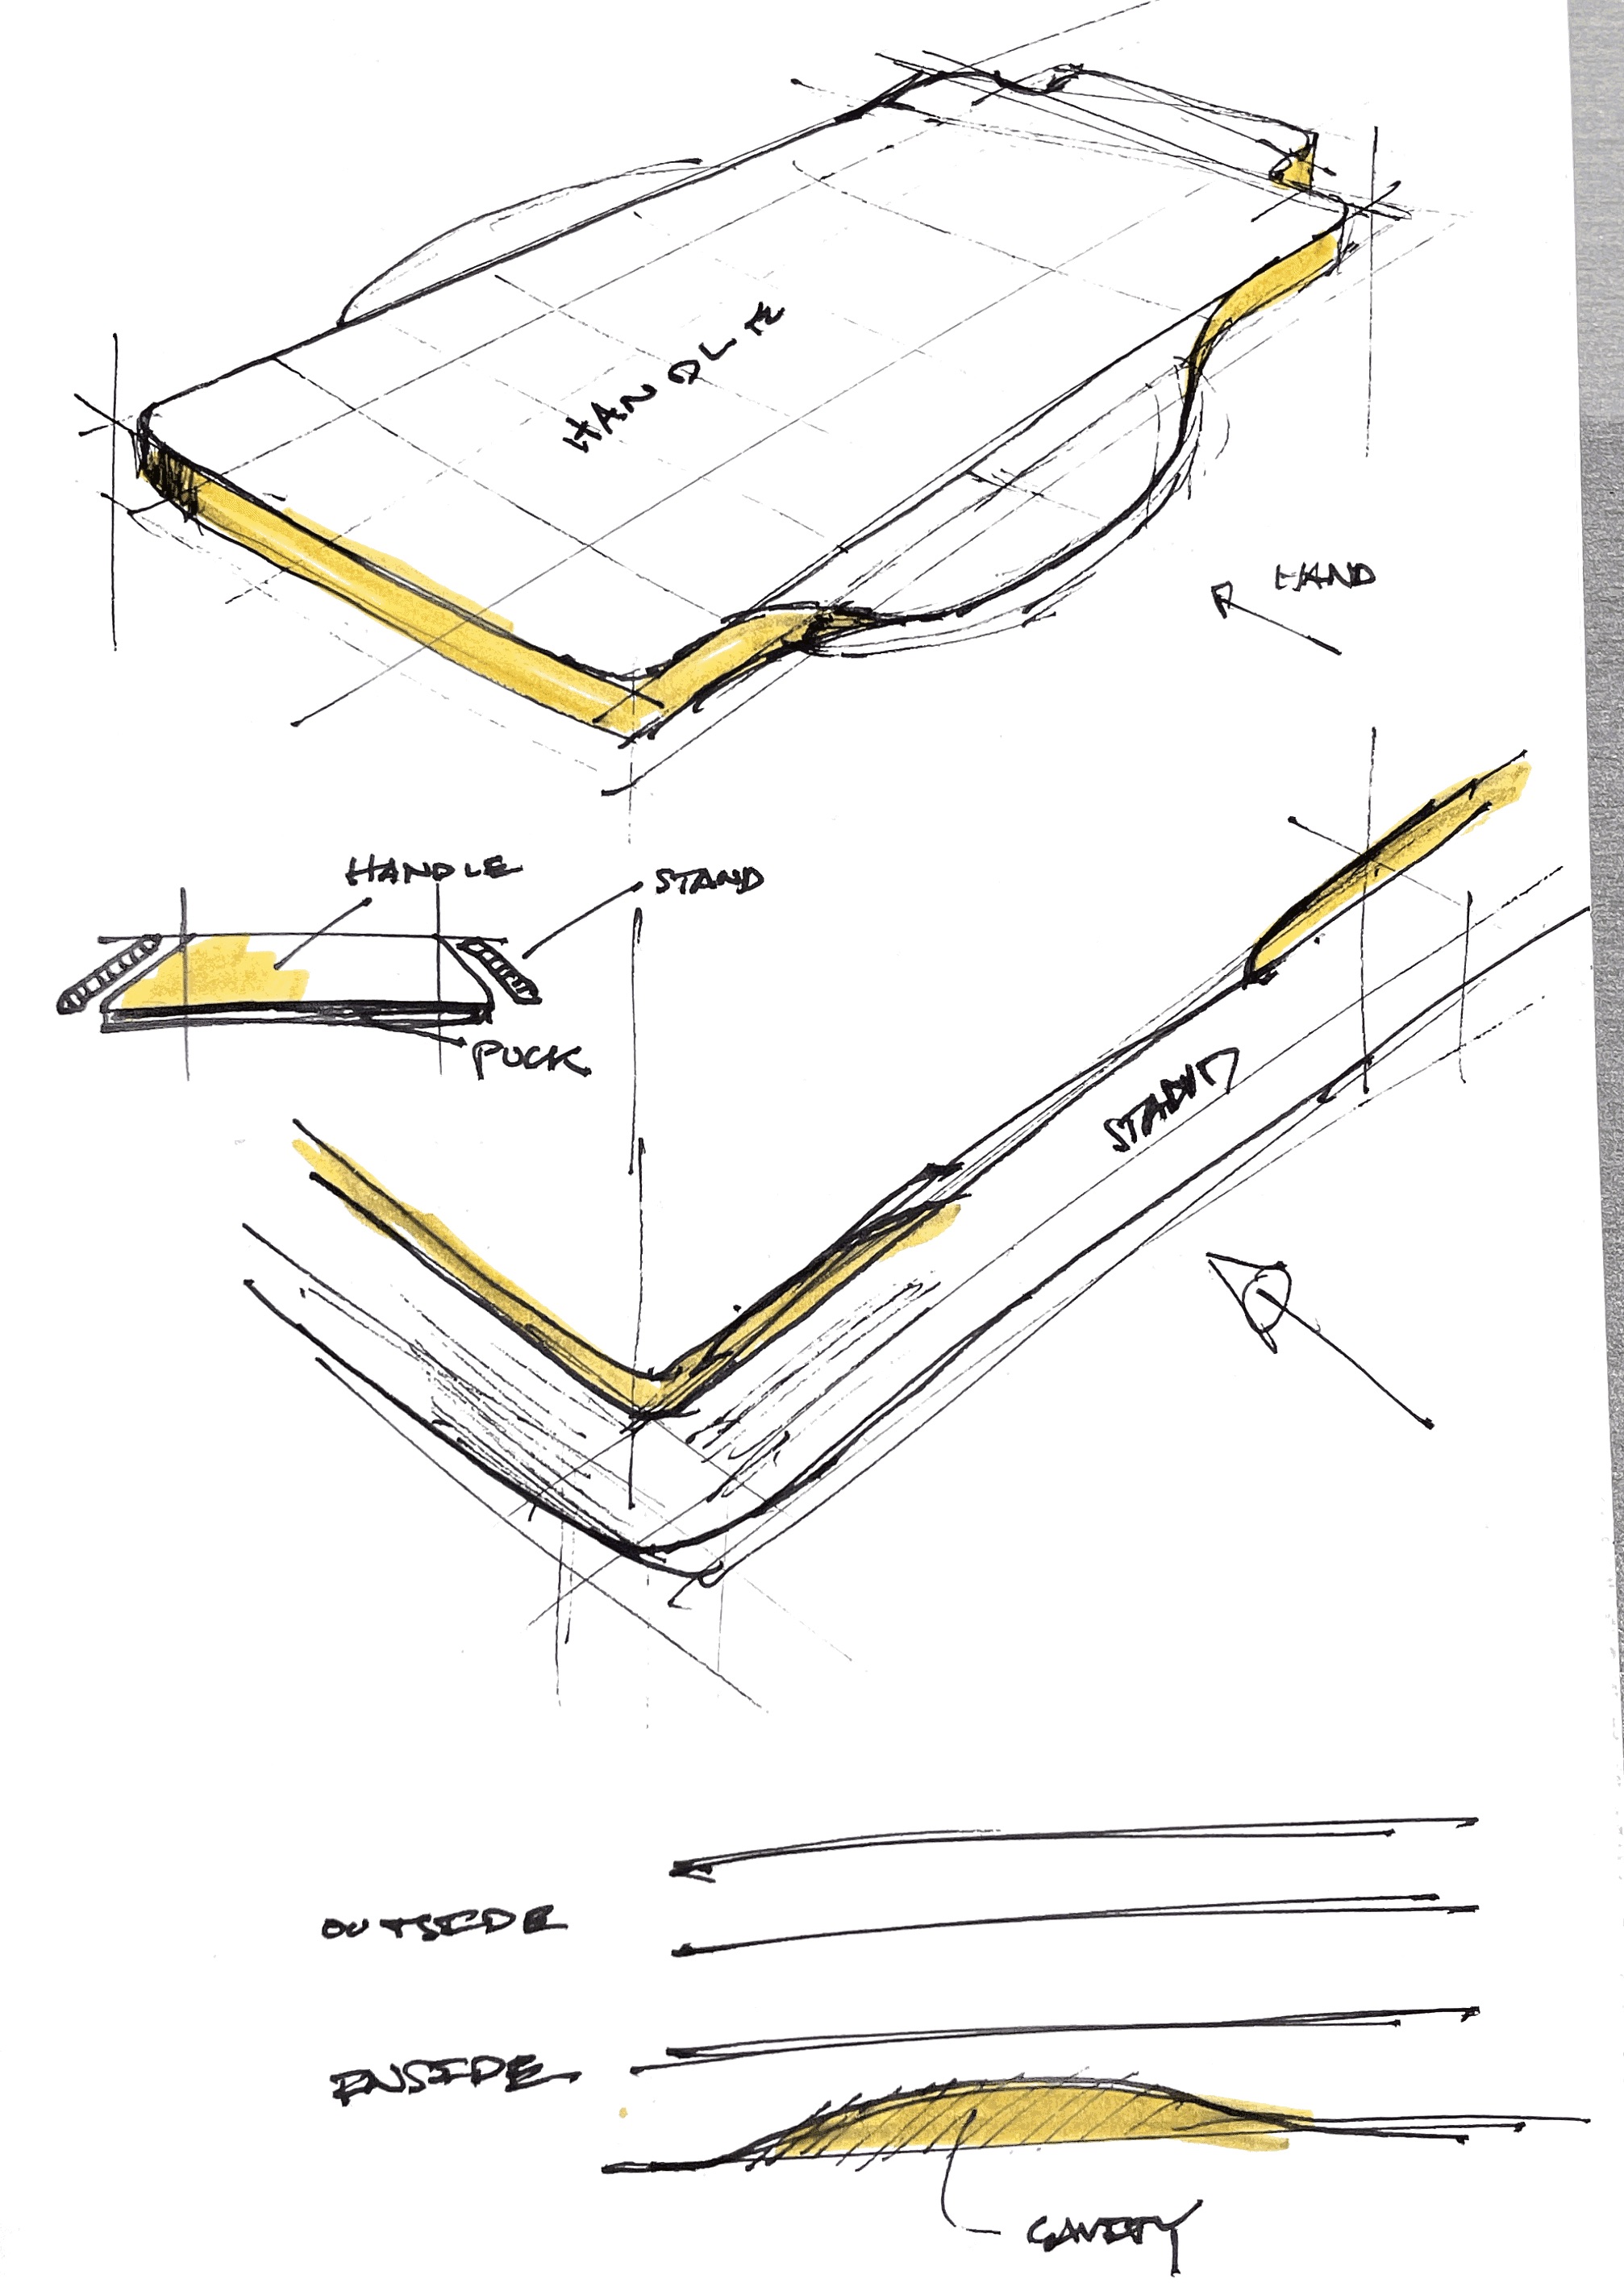 HANDLE
HAND
HANDLE
STAND
PUCK
STAND
OUTSIDE
INSIDE
CAVITY